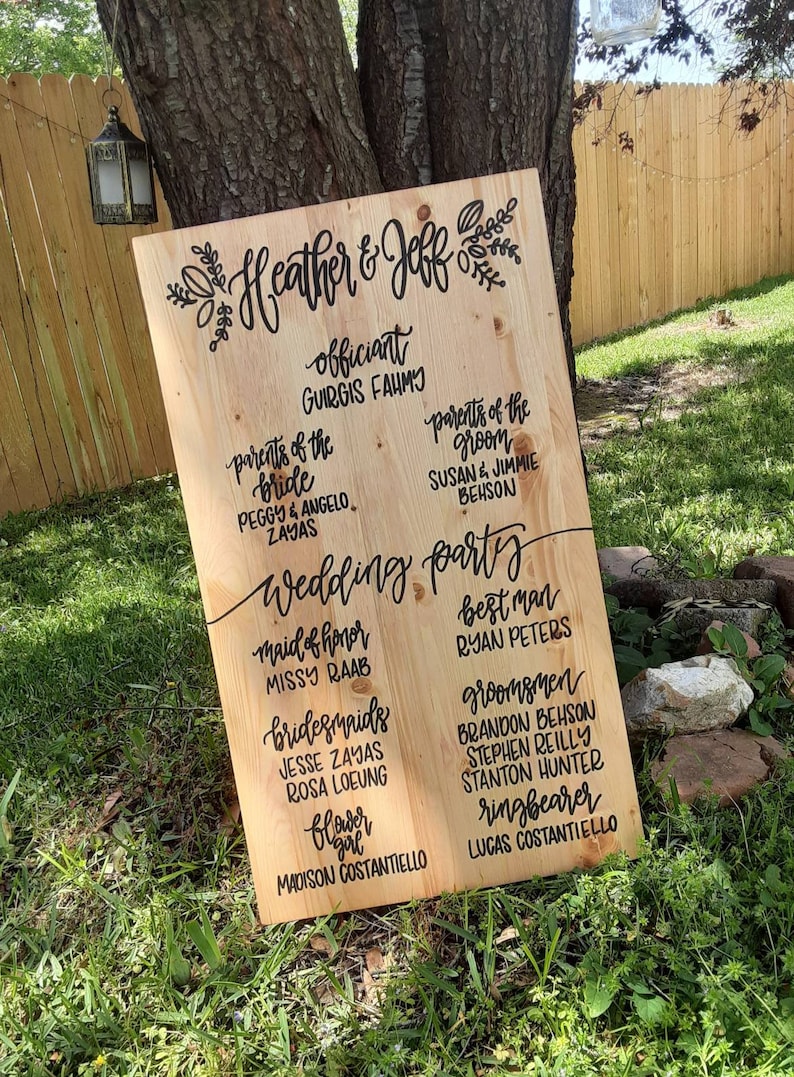 Heather & Jeff
officiant
GUIRGIS FAHMY
parents of the
bride
PEGGY & ANGELO
ZAYAS
parents of the
groom
SUSAN & JIMMIE
BEHSON
wedding party
maid of honor
MISSY RAAB
best man
RYAN PETERS
bridesmaids
JESSE ZAYAS
ROSA LOEUNG
groomsmen
BRANDON BEHSON
STEPHEN REILLY
STANTON HUNTER
flower
girl
MADISON COSTANTIELLO
ringbearer
LUCAS COSTANTIELLO